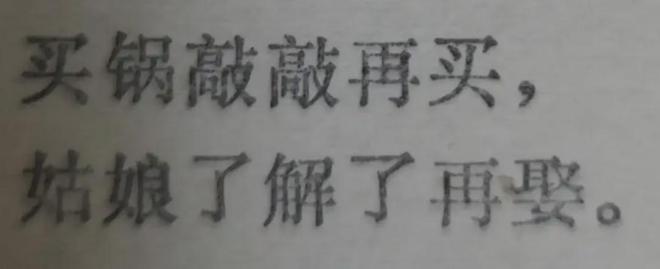 买锅敲敲再买，
姑娘了解了再娶。